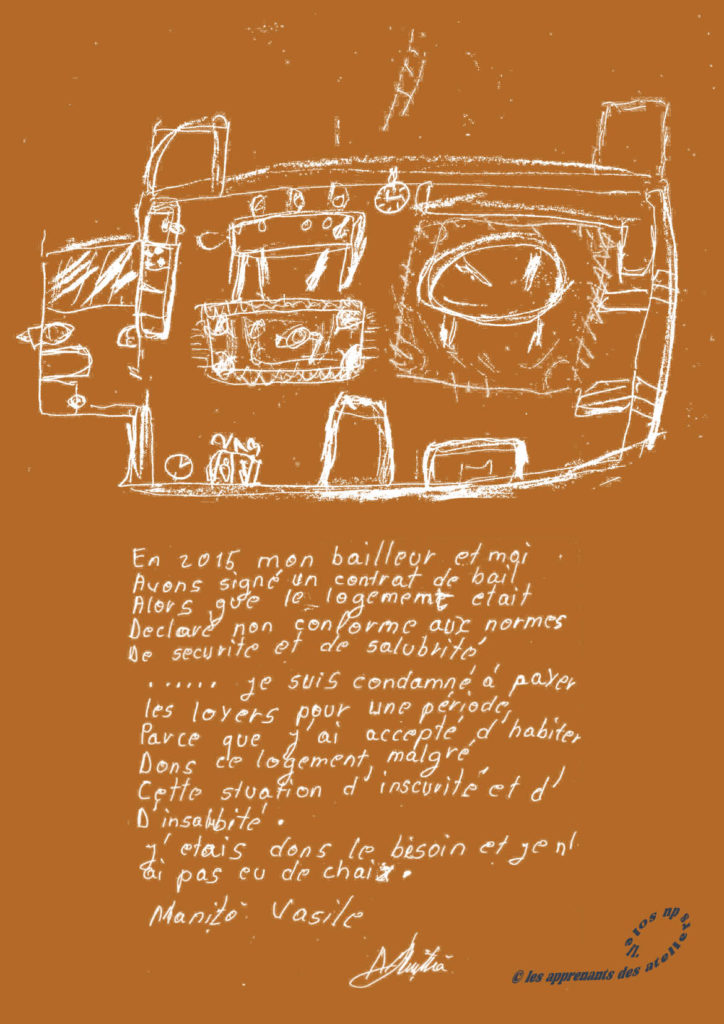 En 2015 mon bailleur et moi
Avons signé un contrat de bail
Alors que le logement etait
Declaré non conforme aux normes
De securite et de salubrité
...... je suis condamné à payer
les loyers pour une période,
Parce que j'ai accepté d'habiter
Dons ce logement, malgré,
Cette stuation d'inscurité et d'
D'insalubité.
j'etais dons le besoin et je n'
ai pas eu de chaix.
Manito Vasile
© les apprenants des ateliers du sol et